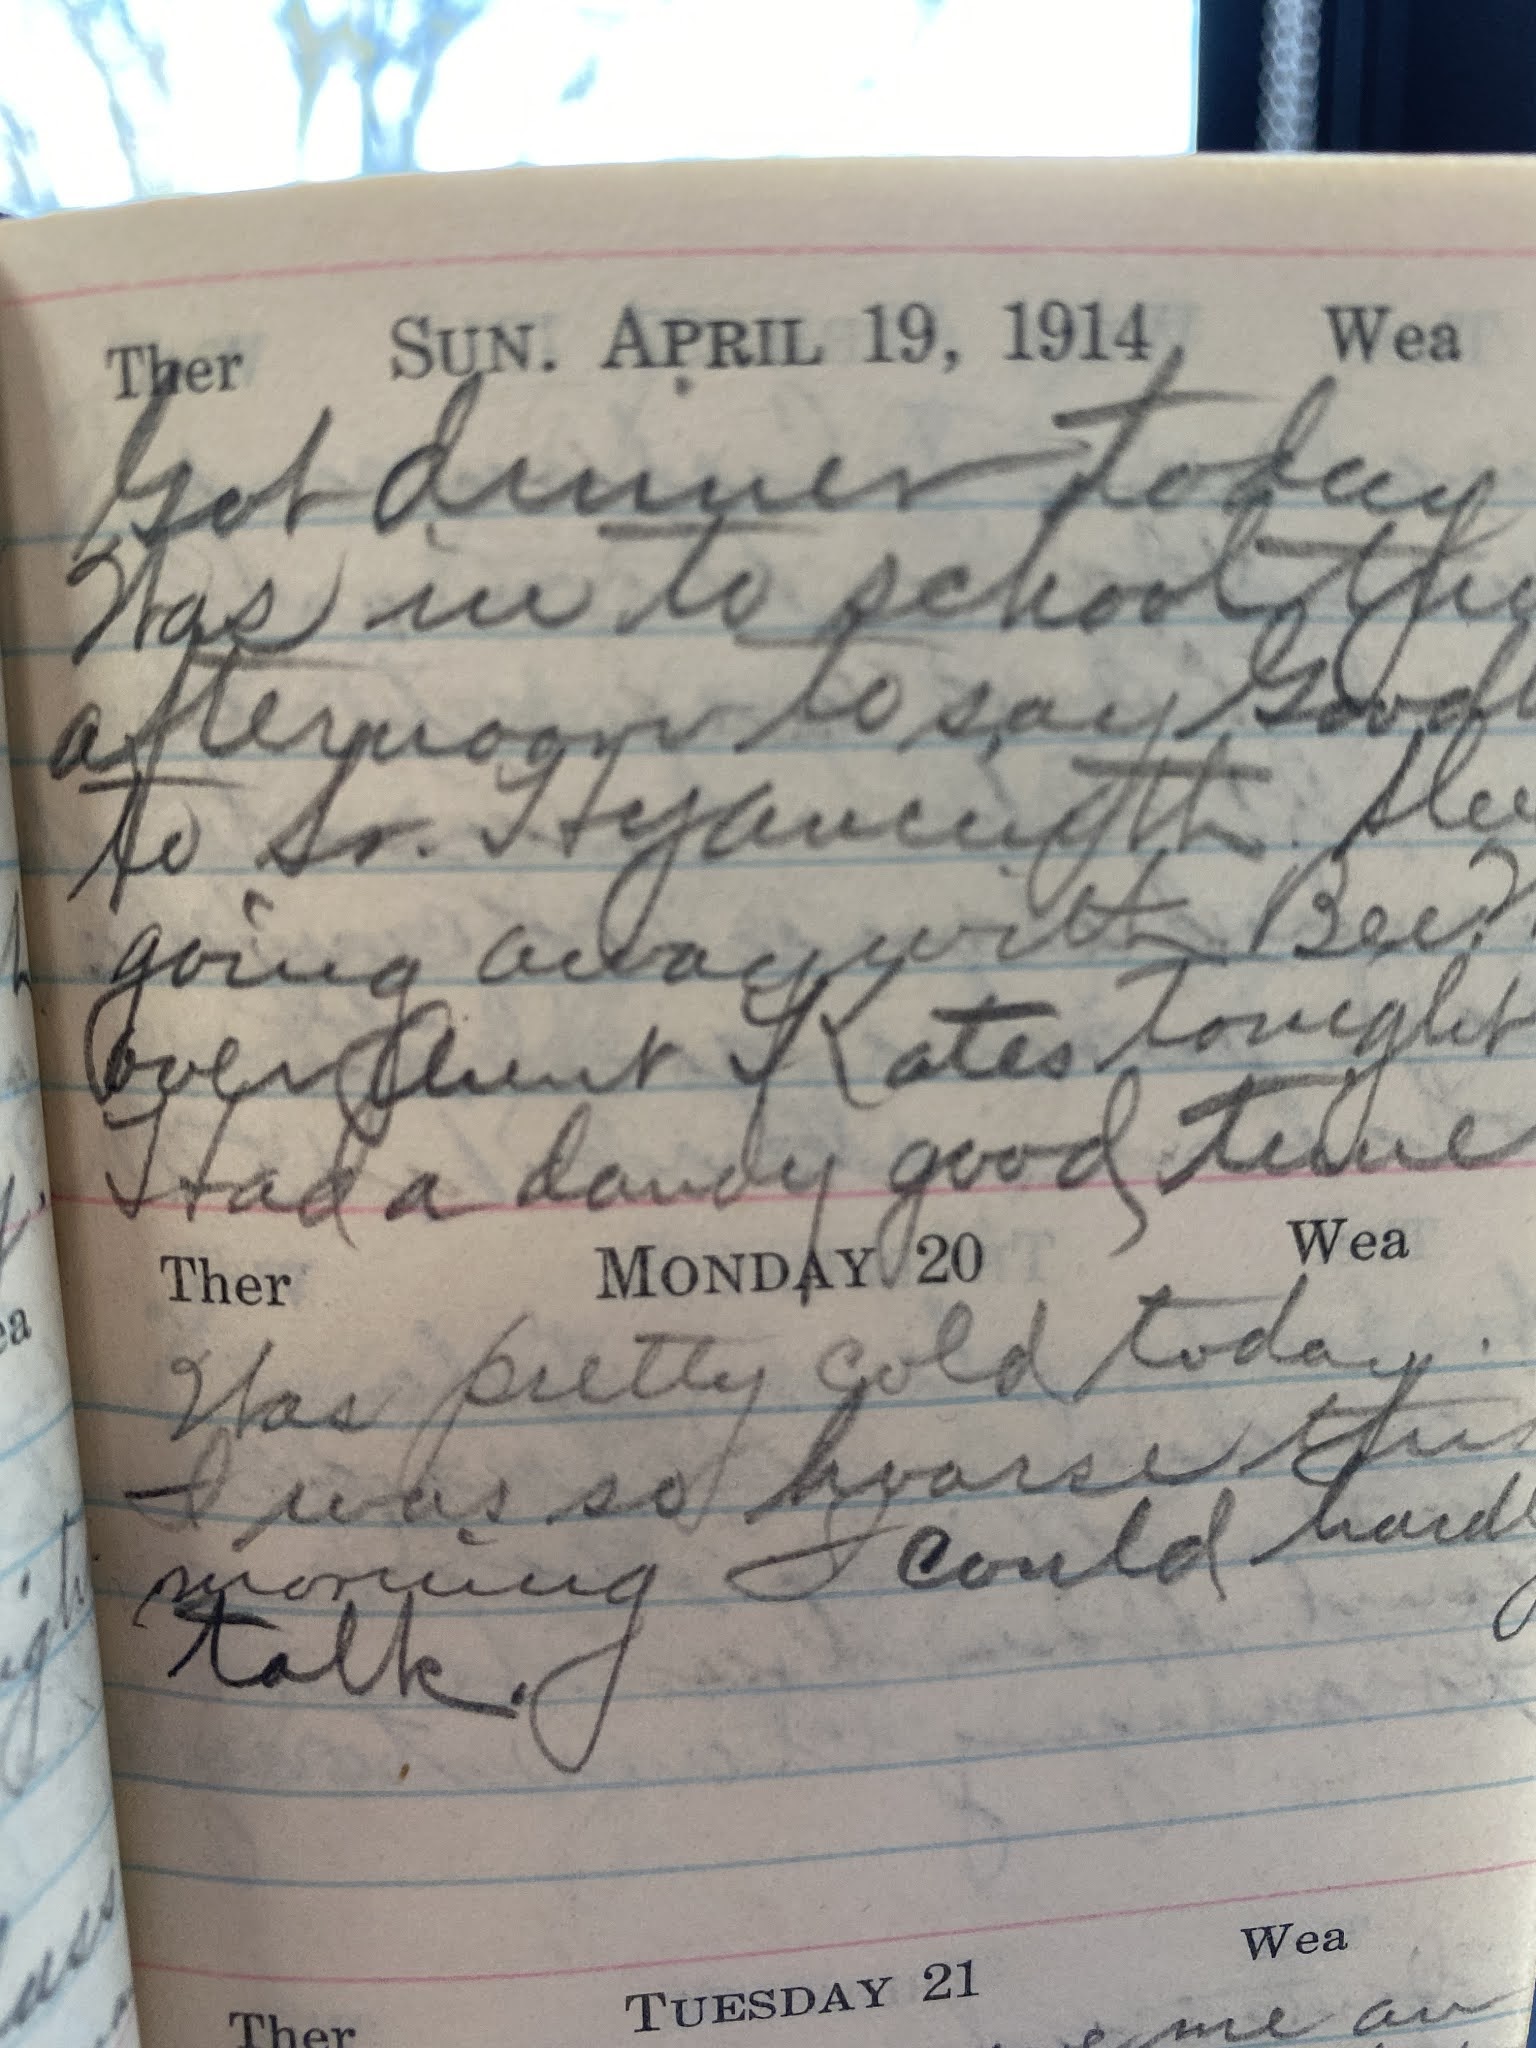 Ther SUN. APRIL 19, 1914 Wea
Got dinner today
Was in to school this
afternoon to say Goodb
to Sr. Hyancingth. She
going away with Bee.
over Aunt Kates Tonight
Had a dandy good time
Ther MONDAY 20 Wea
Was pretty cold today.
I was so hoarse this
morning I could hardly
talk.
Ther TUESDAY 21 Wea
me an